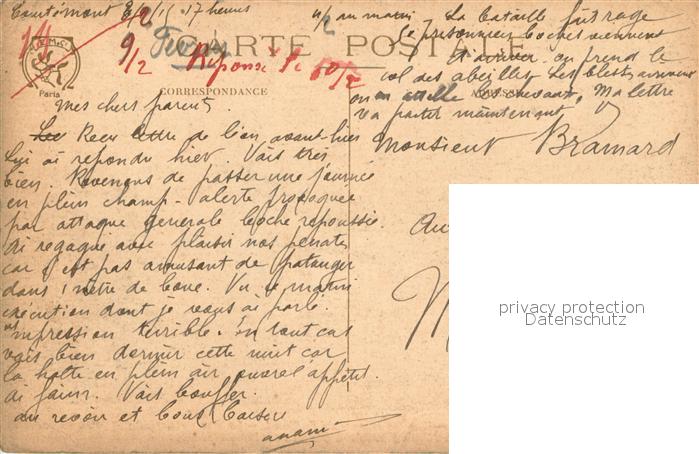 17 heures
4/2 au matin. La bataille fait rage
Les prisonniers boches viennent
d'arriver. on prend le
col des abeilles. Les blessés arrivent
on attelle les chevaux. Ma lettre
va partir maintenant
14
9/2
Réponse le 10/2
CARTE POSTALE
Paris
CORRESPONDANCE
Mes chers parents,
Reçu lettre de Léon avant-hier
lui ai répondu hier. Vais très
bien. Revenons de passer une journée
en plein champ - alerte provoquée
par attaque générale boche repoussée.
Ai regagné avec plaisir nos pénates
car c'est pas amusant de patauger
dans 1 mètre de boue. Vu ce matin
exécution dont je vous ai parlé.
impression terrible. En tout cas
vais bien dormir cette nuit car
la halte en plein air ouvre l'appétit.
ai faim. Vais bouffer.
au revoir et bons baisers
Monsieur Bramard
Au
M
privacy protection
Datenschutz